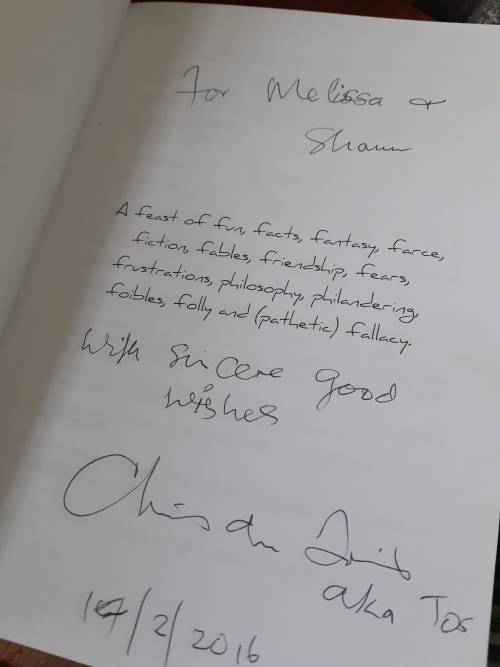 For Melissa &
Shaun
A feast of fun, facts, fantasy, farce,
fiction, fables, friendship, fears,
frustrations, philosophy, philandering,
foibles, folly and (pathetic) fallacy.
With sincere good
wishes
Chris du
aka Tos
14/2/2016